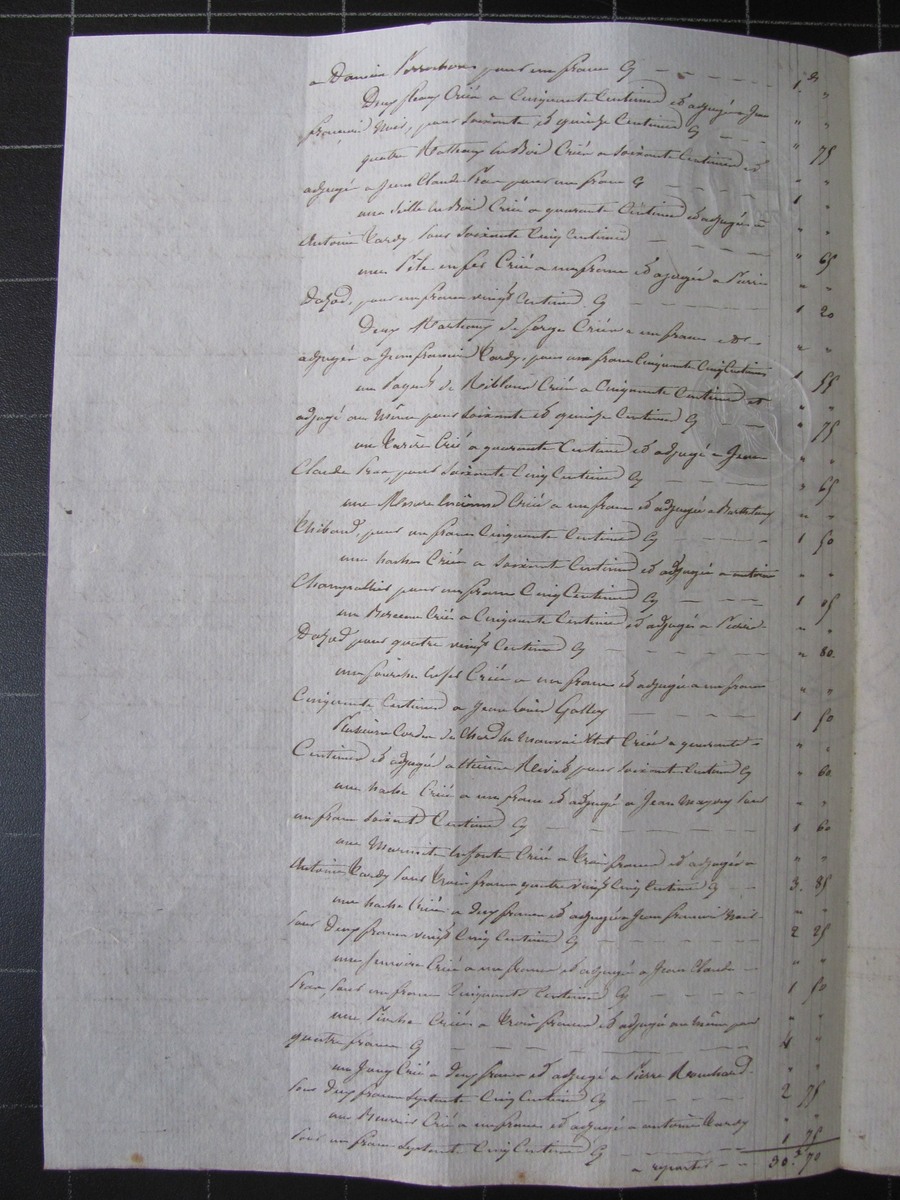 a Damien pour un franc Cy 1 "
Deux Criés a Cinquante Centimes et adjugé a Jean " "
françois pour soixante et quinze Centimes Cy " 75
quatre en Bois Criés a soixante Centimes et " "
adjugé a Jean Claude pour un franc Cy 1 "
une seille en Bois Criée a quarante Centimes et adjugée a " "
Antoine Tardy pour soixante Cinq Centimes " 65
une Pèle en fer Criée a un franc et ajugée a Pierre " "
Dazod, pour un franc vingt Centimes Cy 1 20
Deux Marteaux de forge Criés a un franc et " "
adjugés a Jean françois Tardy, pour un franc Cinquante Cinq Centimes 1 55
un Paquet de Crié a Cinquante Centimes et " "
adjugé au même pour soixante et quinze Centimes Cy " 75
une Crié a quarante Centimes et adjugé a Jean " "
Claude pour soixante Cinq Centimes Cy " 65
une Criée a un franc et adjugée a Barthelemy " "
Thibaud, pour un franc Cinquante Centimes Cy 1 50
une hache Criée a soixante Centimes et adjugée a antoine " "
Champallier pour un franc Cinq Centimes Cy 1 05
un Crié a Cinquante Centimes et adjugé a Pierre " "
Dazod pour quatre vingt Centimes Cy " 80
une fourche en fer Criée a un franc et adjugée a un franc " "
Cinquante Centimes a Jean Louis Galley 1 50
Plusieurs Cordes de Chard en Mauvais Etat Criées a quarante " "
Centimes et adjugé a Etienne pour soixante Centimes Cy " 60
une hache Criée a un franc et adjugée a Jean pour " "
un franc soixante Centimes Cy 1 60
une Marmite en fonte Criée a trois francs et adjugée a " "
Antoine Tardy pour trois francs quatre vingt Cinq Centimes Cy 3 85
une hache Criée a deux francs et adjugée a Jean francois " "
pour Deux francs vingt Cinq Centimes Cy 2 25
une Criée a un franc et adjugé a Jean Claude " "
pour un franc Cinquante Centimes Cy 1 50
une Pioche Criée a trois francs et adjugée au même pour " "
quatre francs Cy 4 "
un Joug Crié a deux francs et adjugé a Pierre " "
pour deux francs septante Cinq Centimes Cy 2 75
une Crié a un franc et adjugé a antoine Tardy " "
pour un franc septante Cinq Centimes Cy 1 75
a reporter 30 70